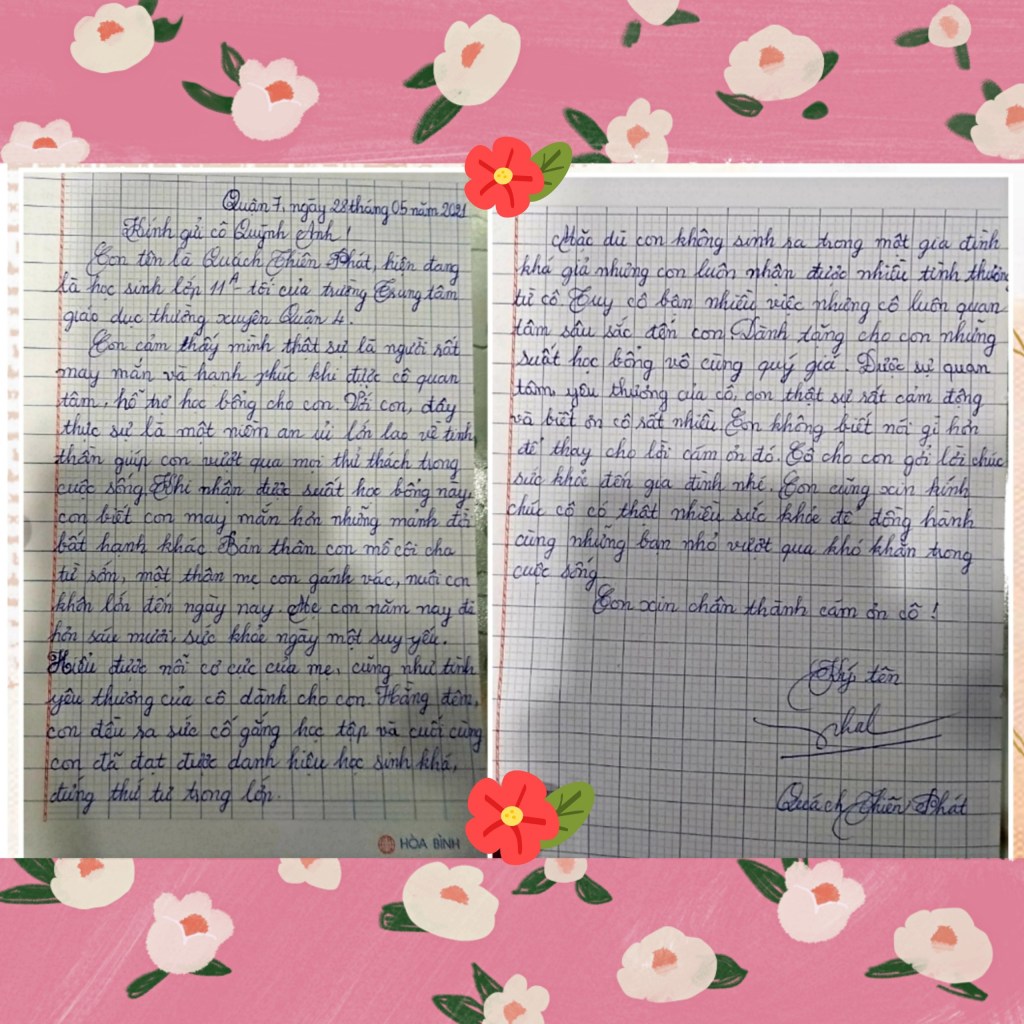 Quận 7, ngày 28 tháng 05 năm 2021
Kính gửi cô Quỳnh Anh !
Con tên là Quách Thiên Phát, hiện đang
là học sinh lớp 11A - tối của trường Trung tâm
giáo dục thường xuyên Quận 4.
Con cảm thấy mình thật sự là người rất
may mắn và hạnh phúc khi được cô quan
tâm, hỗ trợ học bổng cho con. Với con, đây
thực sự là một niềm an ủi lớn lao về tinh
thần giúp con vượt qua mọi thử thách trong
cuộc sống. Khi nhận được suất học bổng này,
con biết con may mắn hơn những mảnh đời
bất hạnh khác. Bản thân con mồ côi cha
từ sớm, một thân mẹ con gánh vác, nuôi con
khôn lớn đến ngày nay. Mẹ con năm nay đã
hơn sáu mươi, sức khỏe ngày một suy yếu.
Hiểu được nỗi cơ cực của mẹ, cũng như tình
yêu thương của cô dành cho con. Hằng đêm,
con đều ra sức cố gắng học tập và cuối cùng
con đã đạt được danh hiệu học sinh khá,
đứng thứ tư trong lớp.
HÒA BÌNH
Mặc dù con không sinh ra trong một gia đình
khá giả nhưng con luôn nhận được nhiều tình thương
từ cô. Tuy cô bận nhiều việc nhưng cô luôn quan
tâm sâu sắc đến con. Dành tặng cho con những
suất học bổng vô cùng quý giá. Được sự quan
tâm, yêu thương của cô, con thật sự rất cảm động
và biết ơn cô rất nhiều. Con không biết nói gì hơn
để thay cho lời cám ơn đó. Cô cho con gởi lời chúc
sức khỏe đến gia đình nhé. Con cũng xin kính
chúc cô có thật nhiều sức khỏe để đồng hành
cùng những bạn nhỏ vượt qua khó khăn trong
cuộc sống.
Con xin chân thành cám ơn cô !
Ký tên
Phat
Quách Thiên Phát